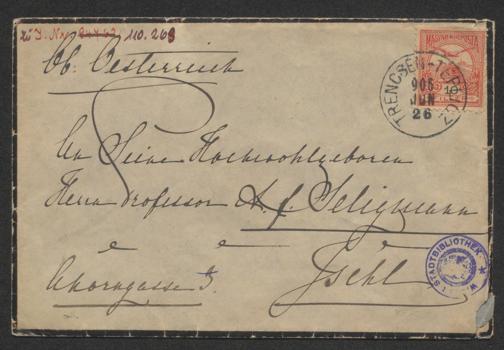 zu J. Nr. 110.268
Ob. Oesterreich
MAGYAR POSTA
TRENCSÉN-TEPLICZ
906
JUN
26
An Seine Hochwohlgeboren
Herrn Professor A. f. Seligmann
Ischl
Ahorngasse 3.
STADTBIBLIOTHEK